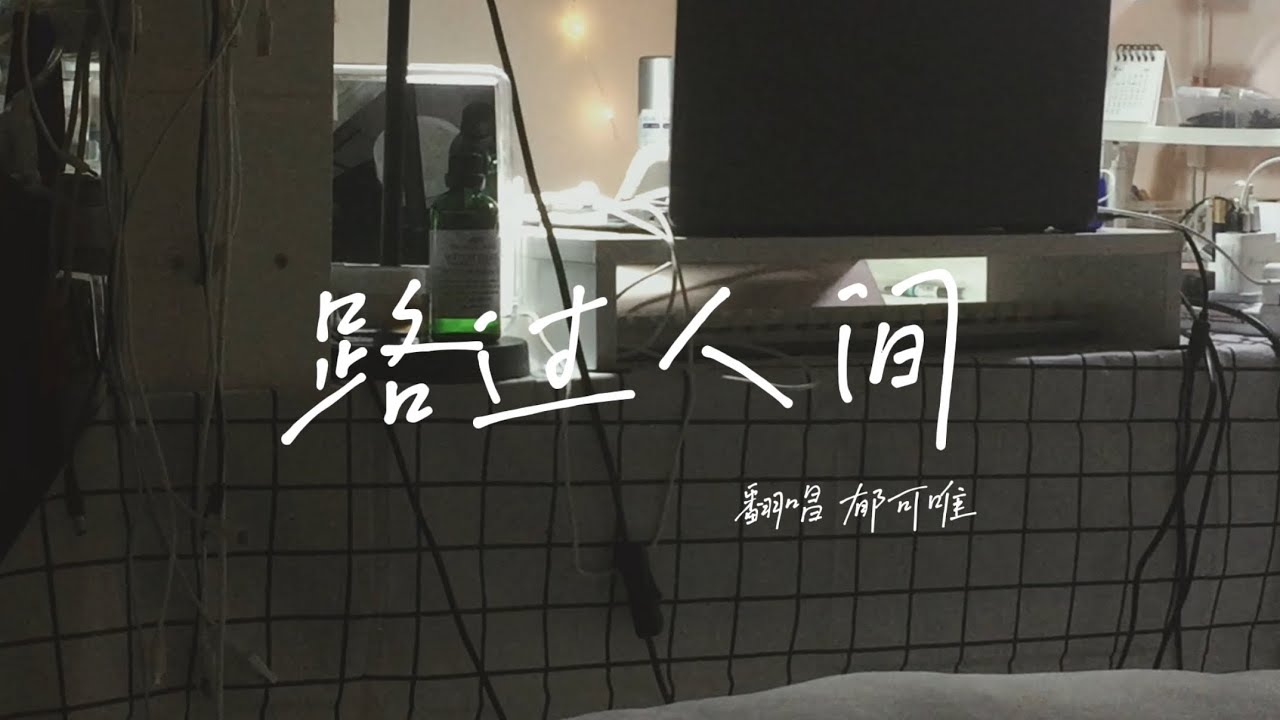 路过人间
翻唱 郁可唯